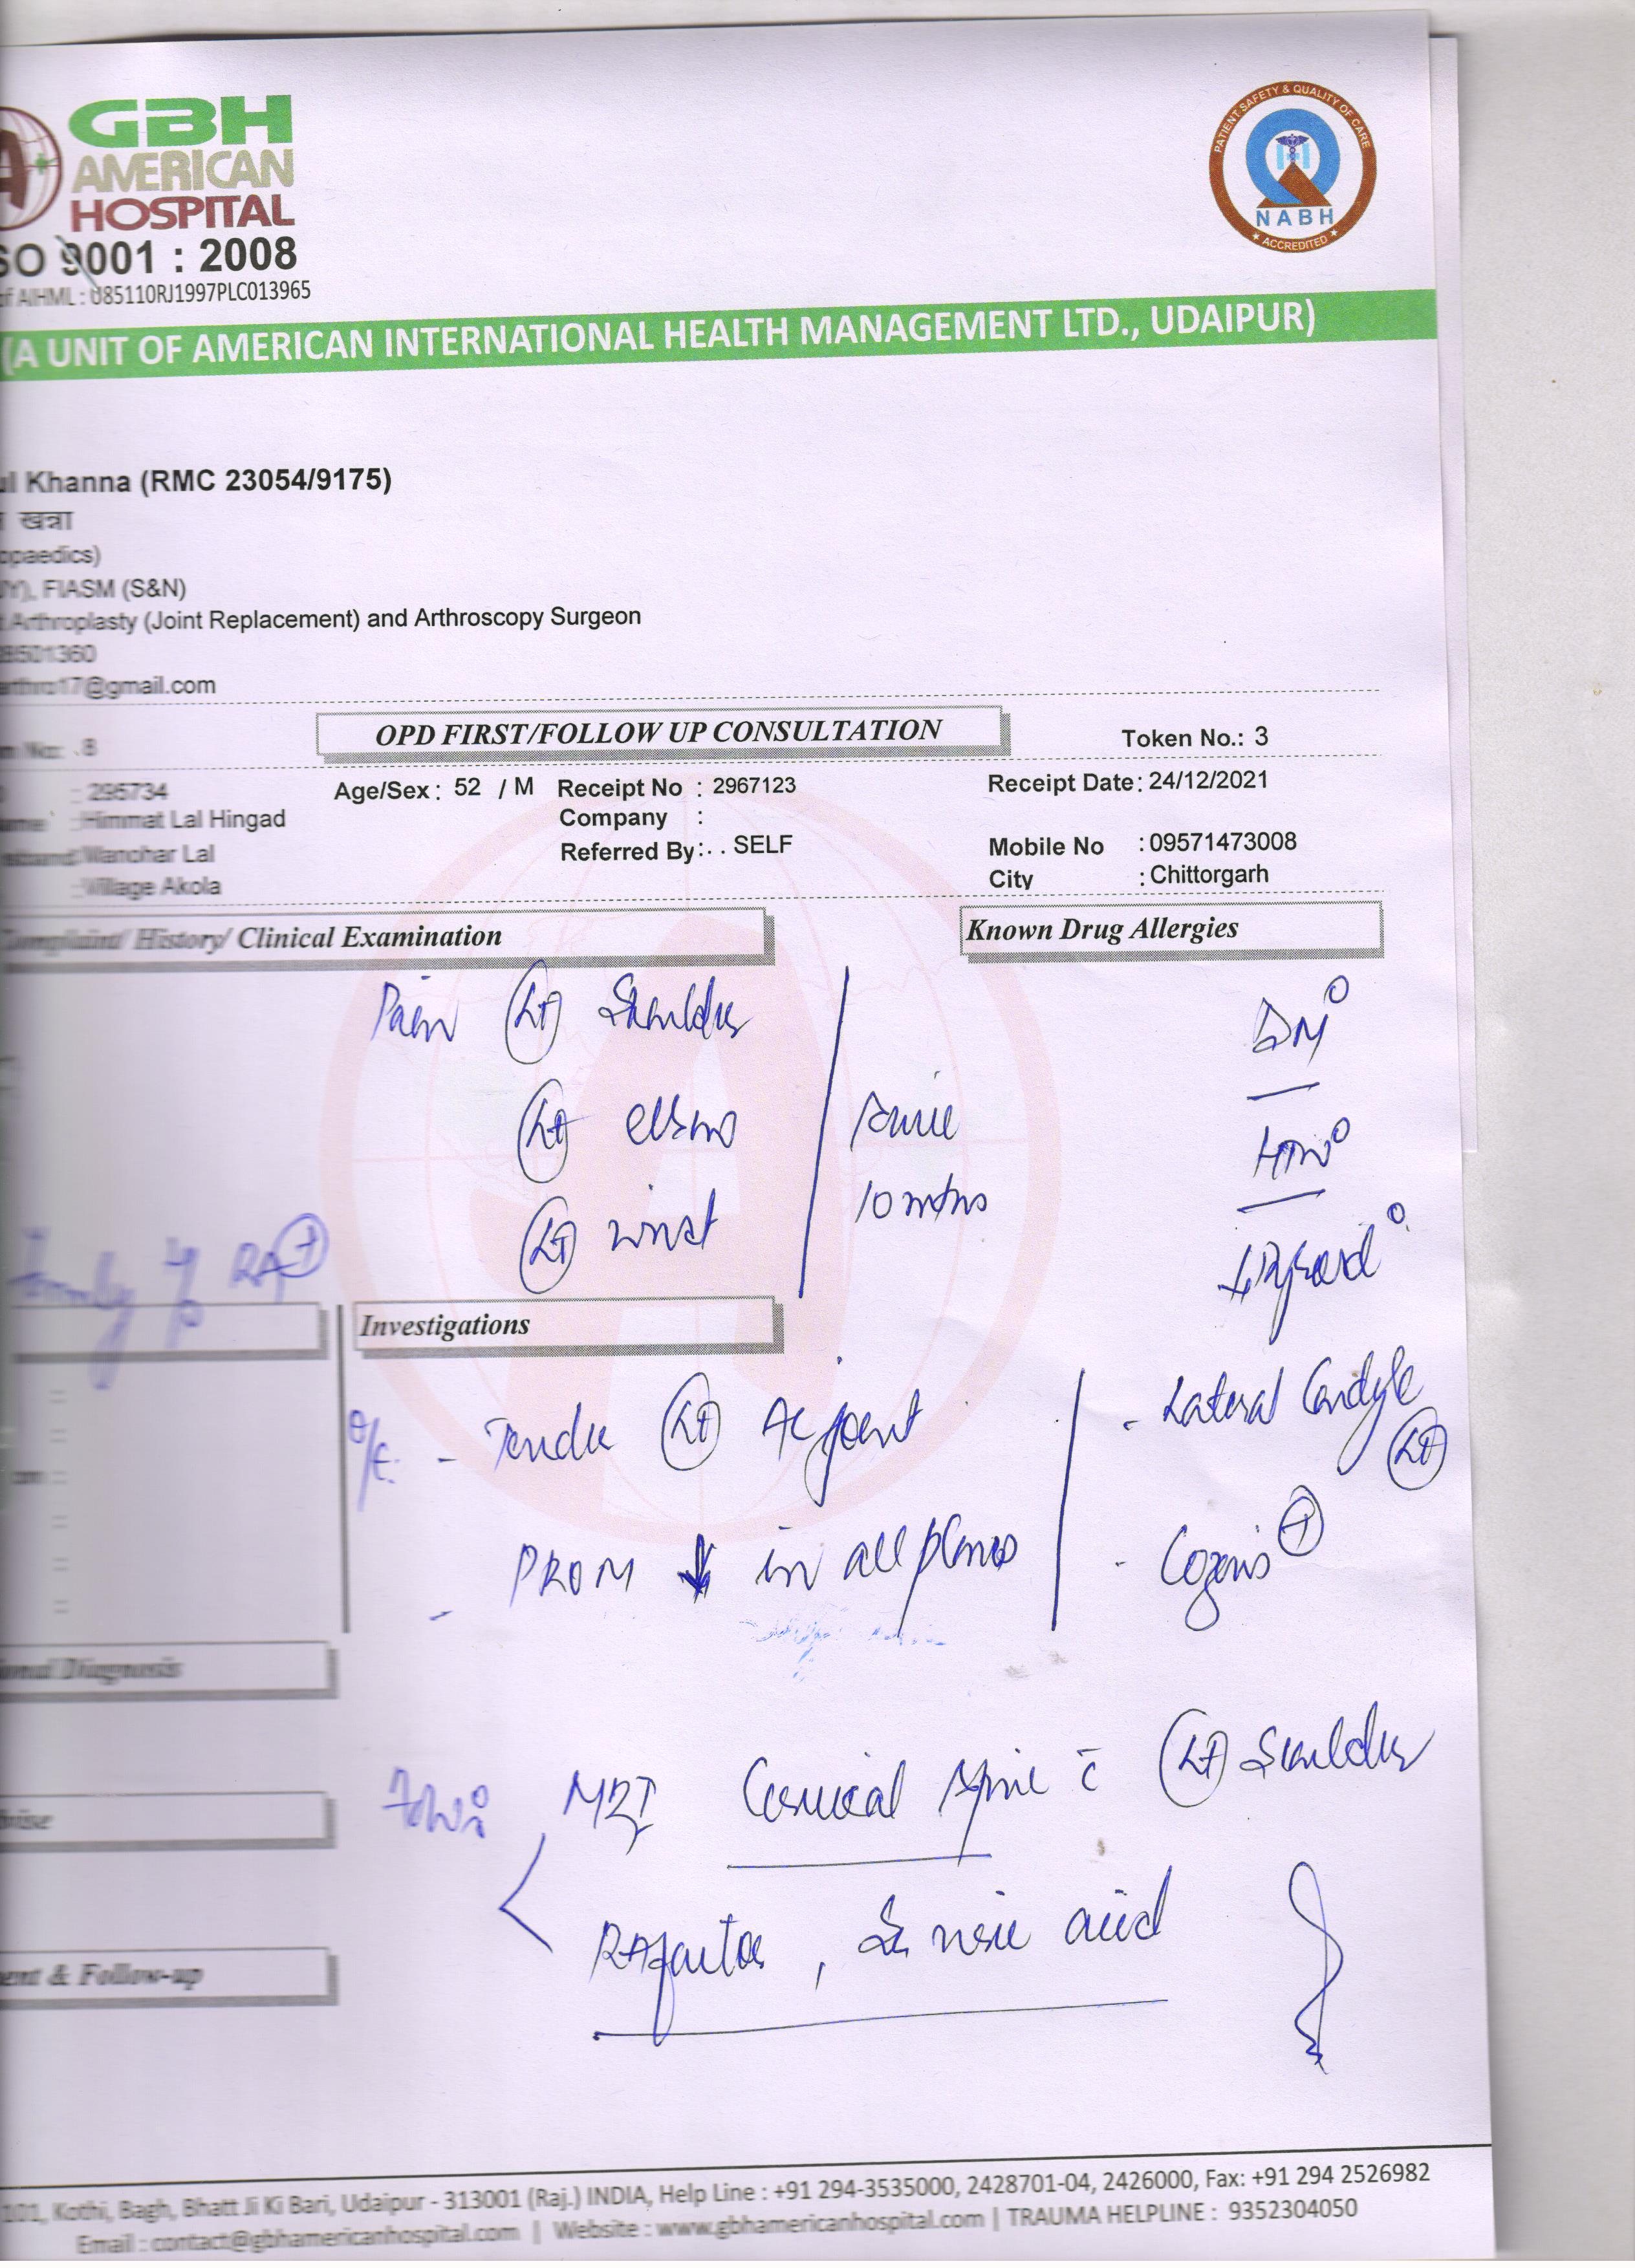 GBH
AMERICAN
HOSPITAL
SO 9001 : 2008
of AIHML : U85110RJ1997PLC013965
PATIENT SAFETY & QUALITY OF CARE
NABH
★ ACCREDITED ★
(A UNIT OF AMERICAN INTERNATIONAL HEALTH MANAGEMENT LTD., UDAIPUR)
ul Khanna (RMC 23054/9175)
खन्ना
opaedics)
FIASM (S&N)
Arthroplasty (Joint Replacement) and Arthroscopy Surgeon
8501360
arthro17@gmail.com
OPD FIRST/FOLLOW UP CONSULTATION
n No: 8
Token No.: 3
: 295734 Age/Sex : 52 / M Receipt No : 2967123 Receipt Date : 24/12/2021
ame : Himmat Lal Hingad Company :
usband: Manohar Lal Referred By : . . SELF Mobile No : 09571473008
: Village Akola City : Chittorgarh
Complaint/ History/ Clinical Examination Known Drug Allergies
Pain (Lt) Shoulder
(Lt) elbow
(Lt) wrist
since
10 mths
DM°
HTN°
Thyroid°
Family h/o RA (+)
Investigations
O/E. - Tender (Lt) AC joint
- PROM ↓ in all planes
- Lateral Condyle (Lt)
- Cozens (+)
onal Diagnosis
Adv: MRI Cervical Spine c̄ (Lt) Shoulder
RA factor, S. uric acid
ent & Follow-up
101, Kothi, Bagh, Bhatt Ji Ki Bari, Udaipur - 313001 (Raj.) INDIA, Help Line : +91 294-3535000, 2428701-04, 2426000, Fax: +91 294 2526982
Email : contact@gbhamericanhospital.com | Website : www.gbhamericanhospital.com | TRAUMA HELPLINE : 9352304050